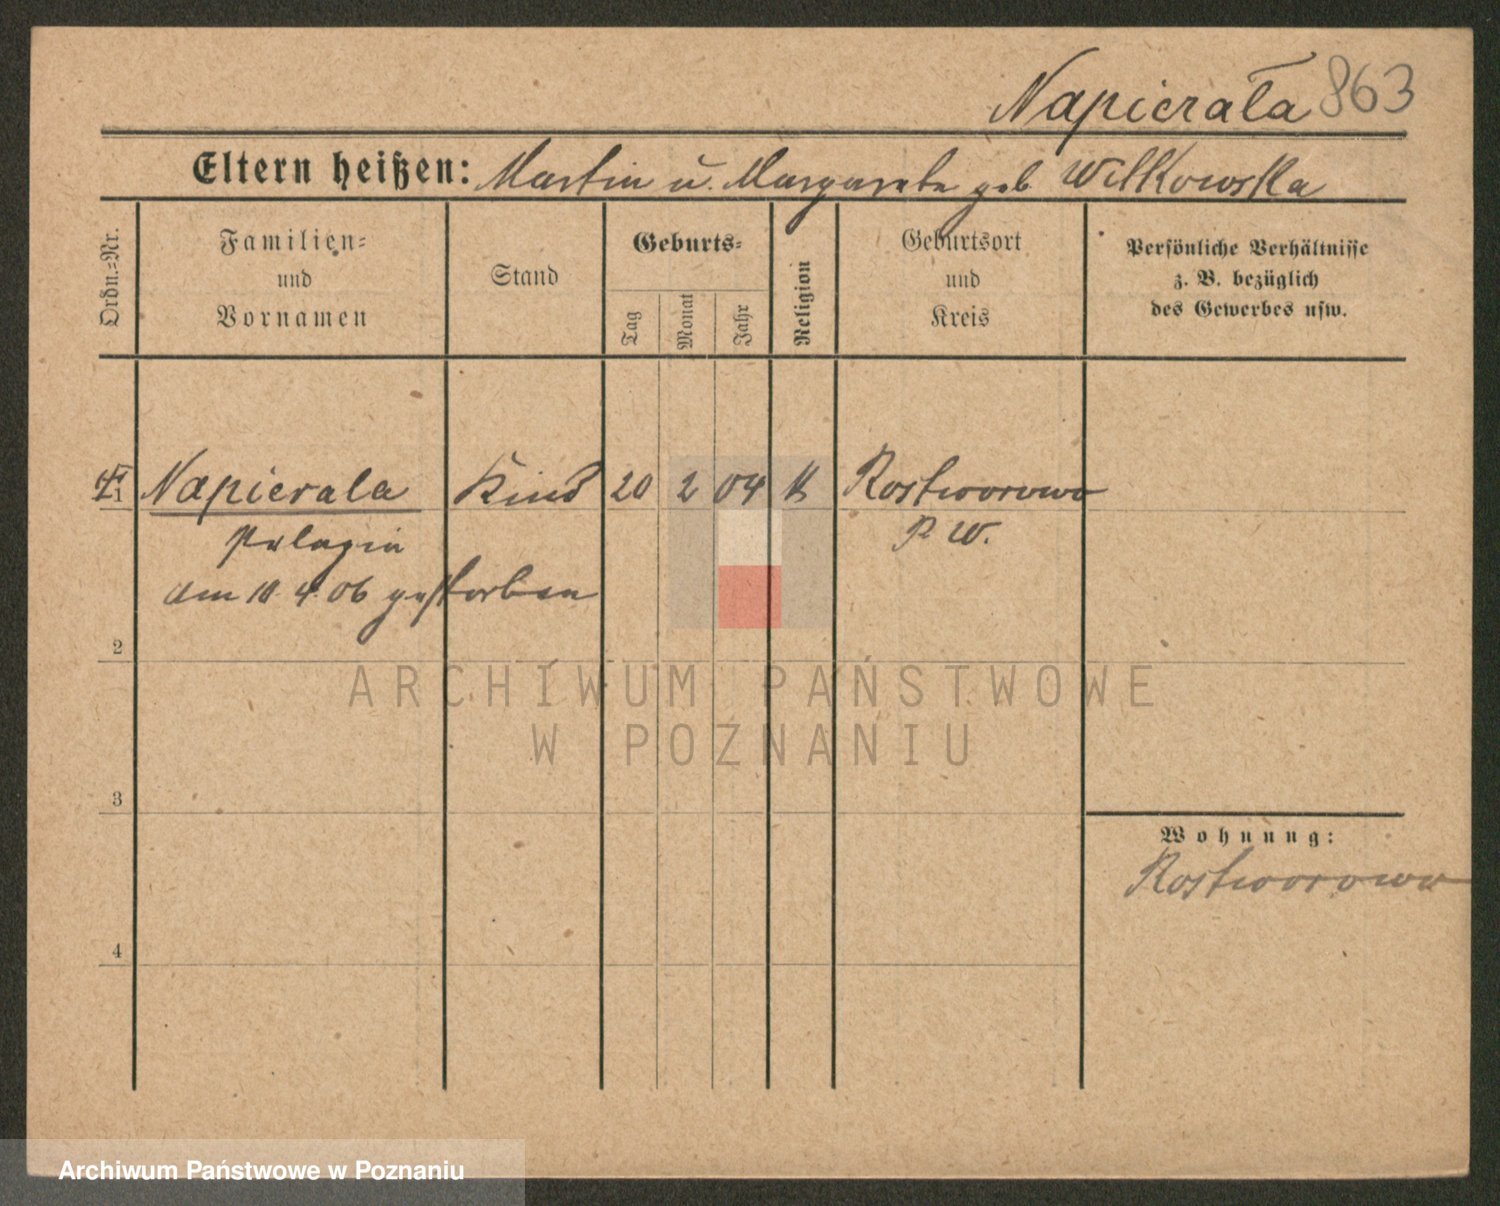 Napierała 863
Eltern heißen: Martin u. Margarete geb Witkowska
Ordn.-Nr.
Familien-
und
Vornamen
Stand
Geburts-
Tag
Monat
Jahr
Religion
Geburtsort
und
Kreis
Persönliche Verhältnisse
z. B. bezüglich
des Gewerbes usw.
1 Napierala Kind 20 2 04 K Rostworowo
Pelagia P W.
am 10 4 06 gestorben
2
ARCHIWUM PAŃSTWOWE
W POZNANIU
3
Wohnung:
Rostworowo
4
Archiwum Państwowe w Poznaniu